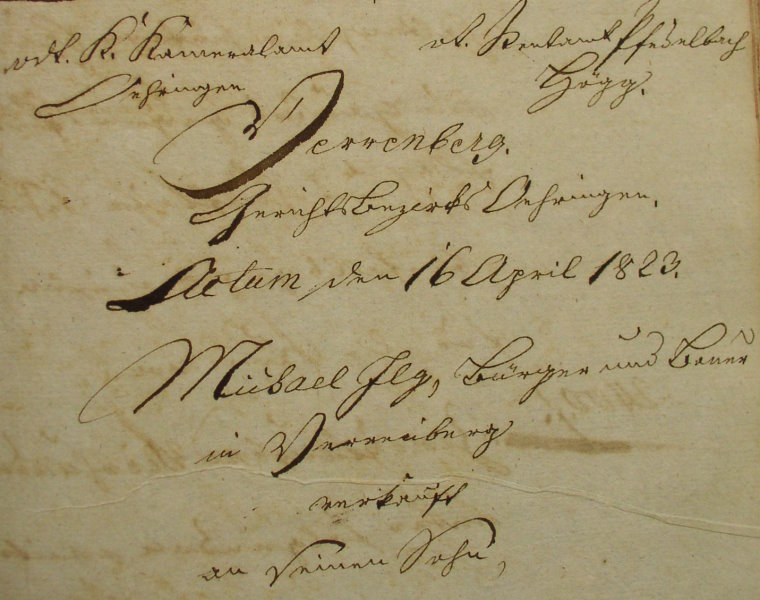 vdt. K. Kameralamt
Oehringen
vt. Rentamt Pfedelbach
Högg.
Verrenberg.
Gerichtsbezirks Oehringen.
Actum den 16 April 1823.
Michael Ilg, Bürger und Bauer
in Verrenberg
verkauft
an seinen Sohn,